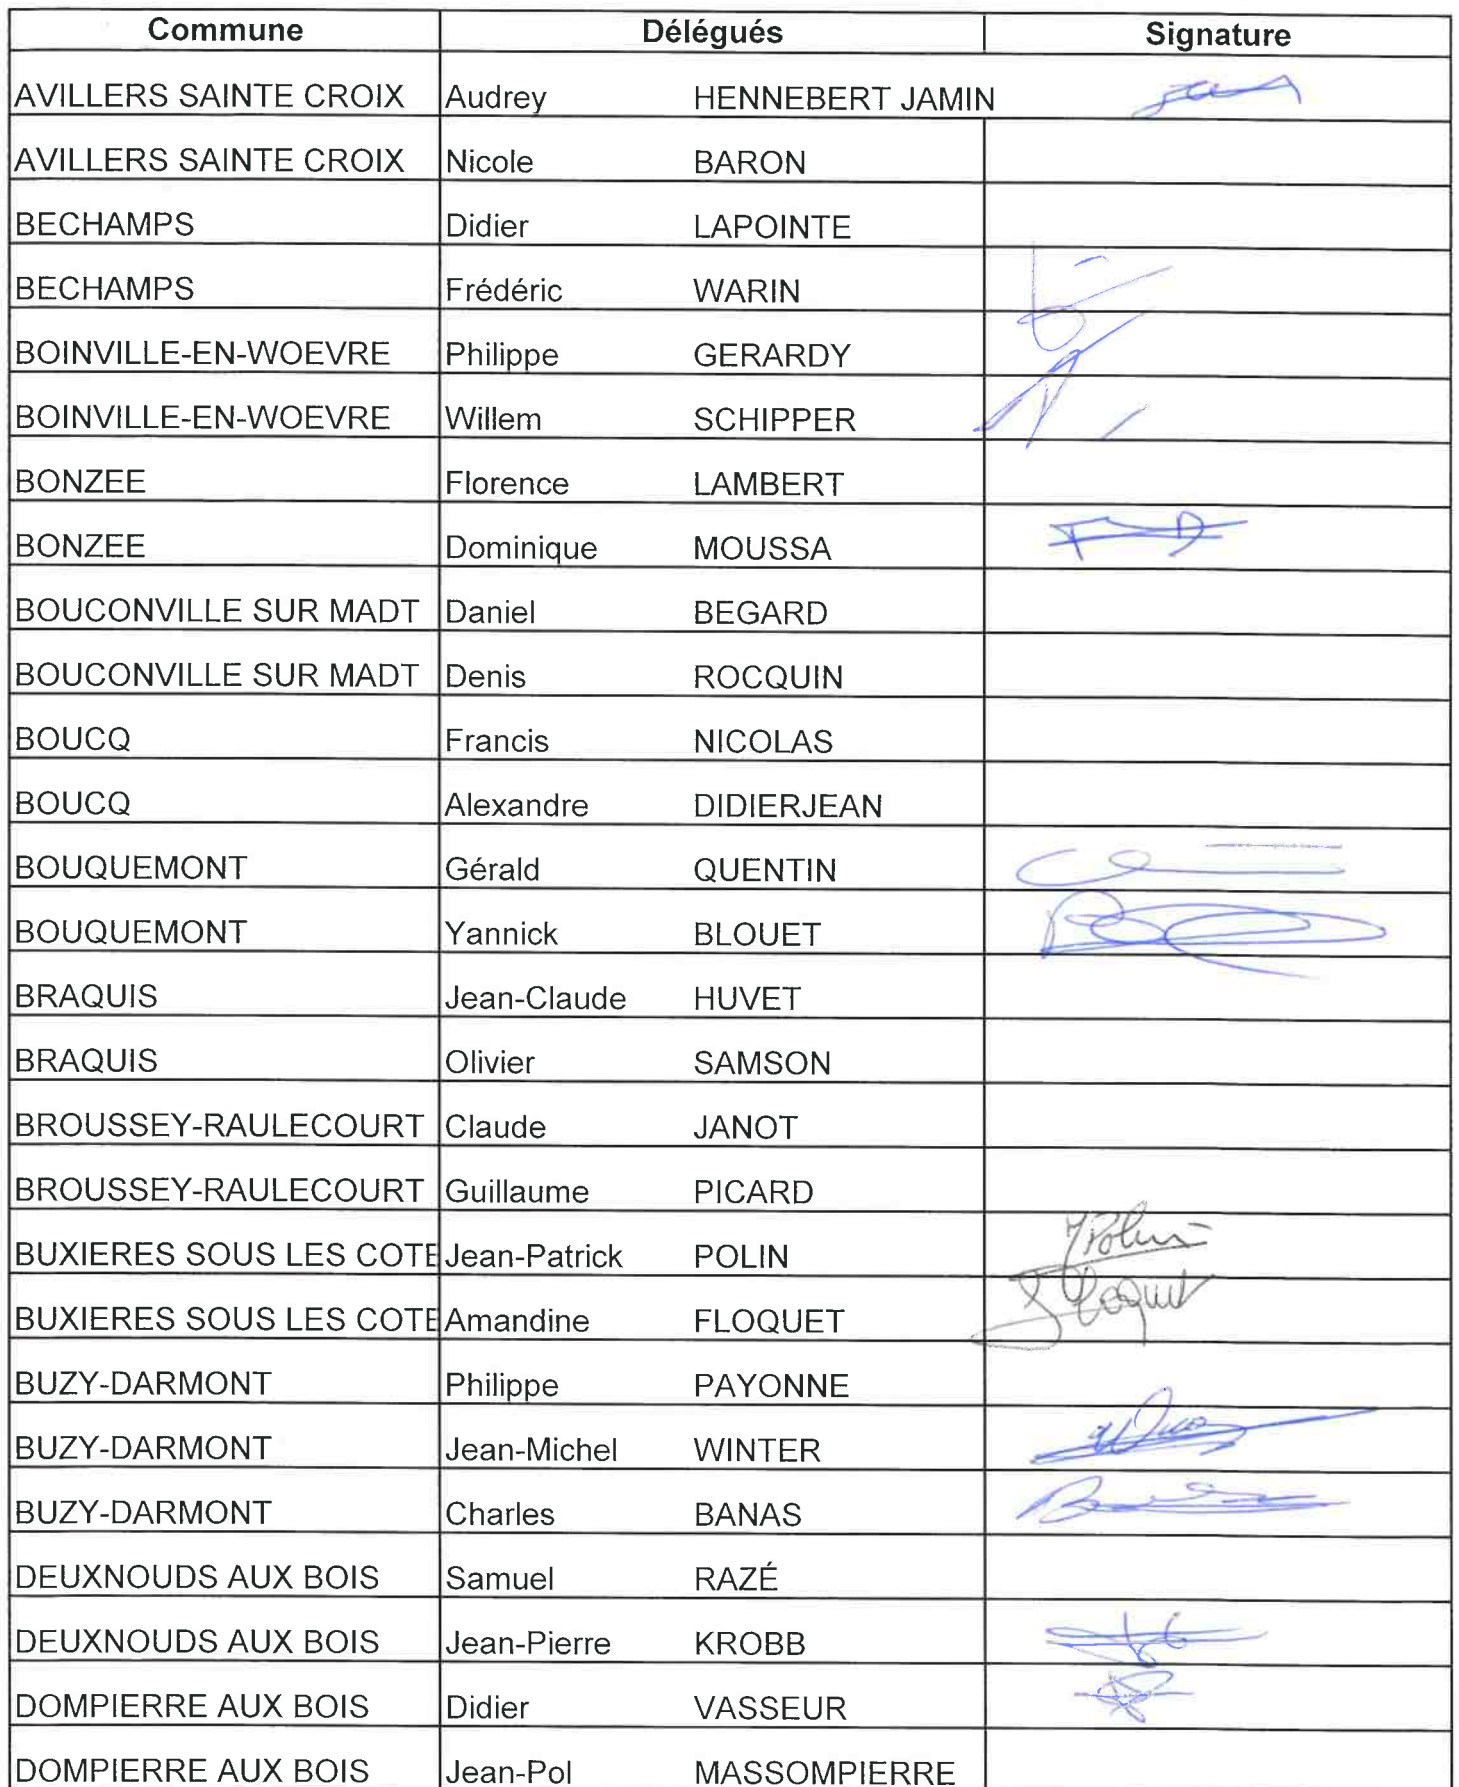 Commune Délégués Signature
AVILLERS SAINTE CROIX Audrey HENNEBERT JAMIN
AVILLERS SAINTE CROIX Nicole BARON
BECHAMPS Didier LAPOINTE
BECHAMPS Frédéric WARIN
BOINVILLE-EN-WOEVRE Philippe GERARDY
BOINVILLE-EN-WOEVRE Willem SCHIPPER
BONZEE Florence LAMBERT
BONZEE Dominique MOUSSA
BOUCONVILLE SUR MADT Daniel BEGARD
BOUCONVILLE SUR MADT Denis ROCQUIN
BOUCQ Francis NICOLAS
BOUCQ Alexandre DIDIERJEAN
BOUQUEMONT Gérald QUENTIN
BOUQUEMONT Yannick BLOUET
BRAQUIS Jean-Claude HUVET
BRAQUIS Olivier SAMSON
BROUSSEY-RAULECOURT Claude JANOT
BROUSSEY-RAULECOURT Guillaume PICARD
BUXIERES SOUS LES COTE Jean-Patrick POLIN JPolin
BUXIERES SOUS LES COTE Amandine FLOQUET Floquet
BUZY-DARMONT Philippe PAYONNE
BUZY-DARMONT Jean-Michel WINTER
BUZY-DARMONT Charles BANAS
DEUXNOUDS AUX BOIS Samuel RAZÉ
DEUXNOUDS AUX BOIS Jean-Pierre KROBB
DOMPIERRE AUX BOIS Didier VASSEUR
DOMPIERRE AUX BOIS Jean-Pol MASSOMPIERRE